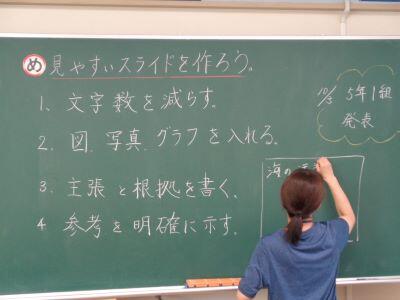 め 見やすいスライドを作ろう。
1、文字数を減らす。
2.図.写真.グラフを入れる。
3.主張と根拠を書く.
4 参考を明確に示す.
10/3 5年1組
発表
海の